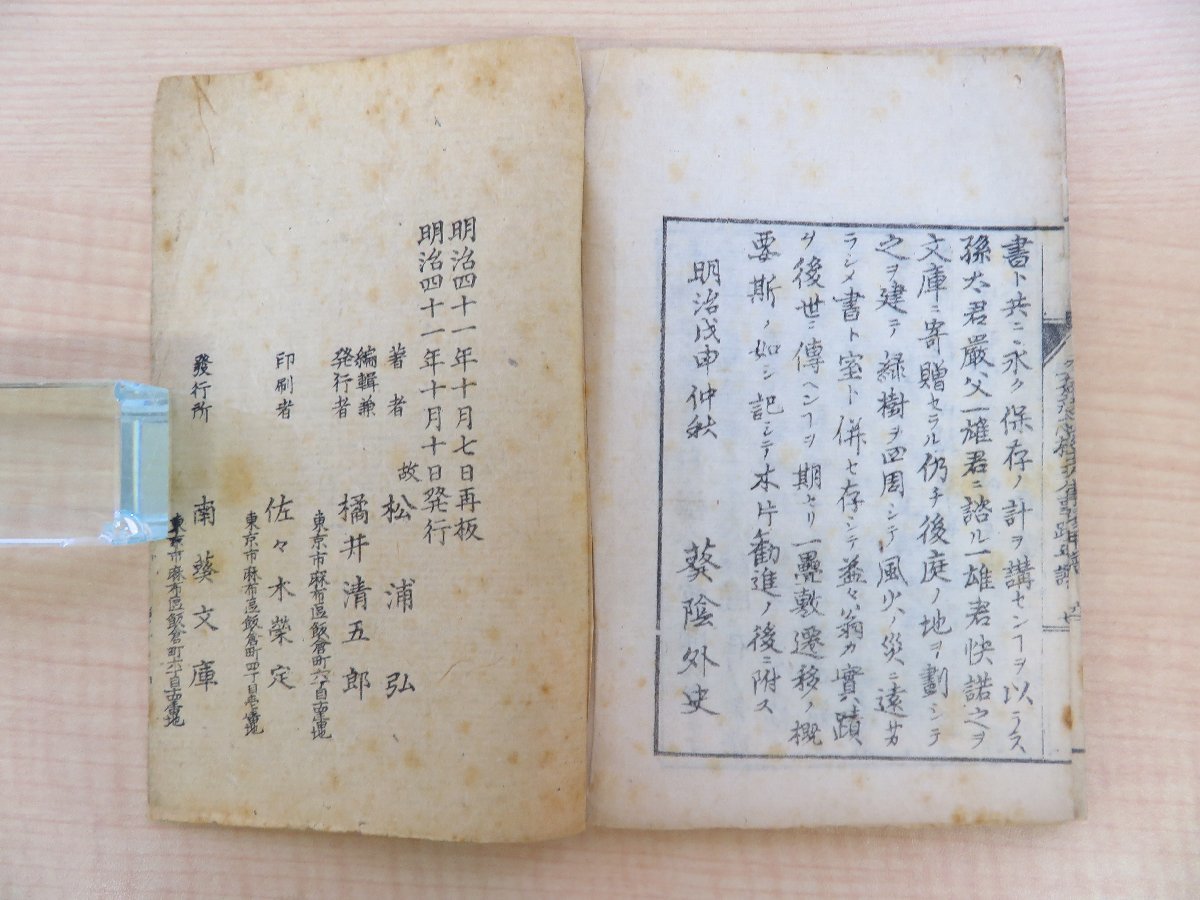 書ト共ニ永ク保存ノ計ヲ講センヿヲ以テス
孫太君嚴父一雄君ニ諮ル一雄君快諾之ヲ
文庫ニ寄贈セラル仍チ後庭ノ地ヲ劃シテ
之ヲ建テ緑樹ヲ四周シテ風火ノ災ニ遠サカ
ラシメ書ト室ト併セ存シテ並々翁カ實蹟
ヲ後世ニ傳ヘンヿヲ期セリ一疊敷遷移ノ概
要斯ノ如シ記シテ木片勸進ノ後ニ附ス
明治戊申仲秋 葵陰外史
明治四十一年十月七日再板
明治四十一年十月十日発行
著者 故松浦弘
編輯兼発行者 橘井清五郎
東京市麻布區飯倉町六丁目
印刷者 佐々木榮定
東京市麻布區飯倉町四丁目
發行所 南葵文庫
東京市麻布區飯倉町六丁目